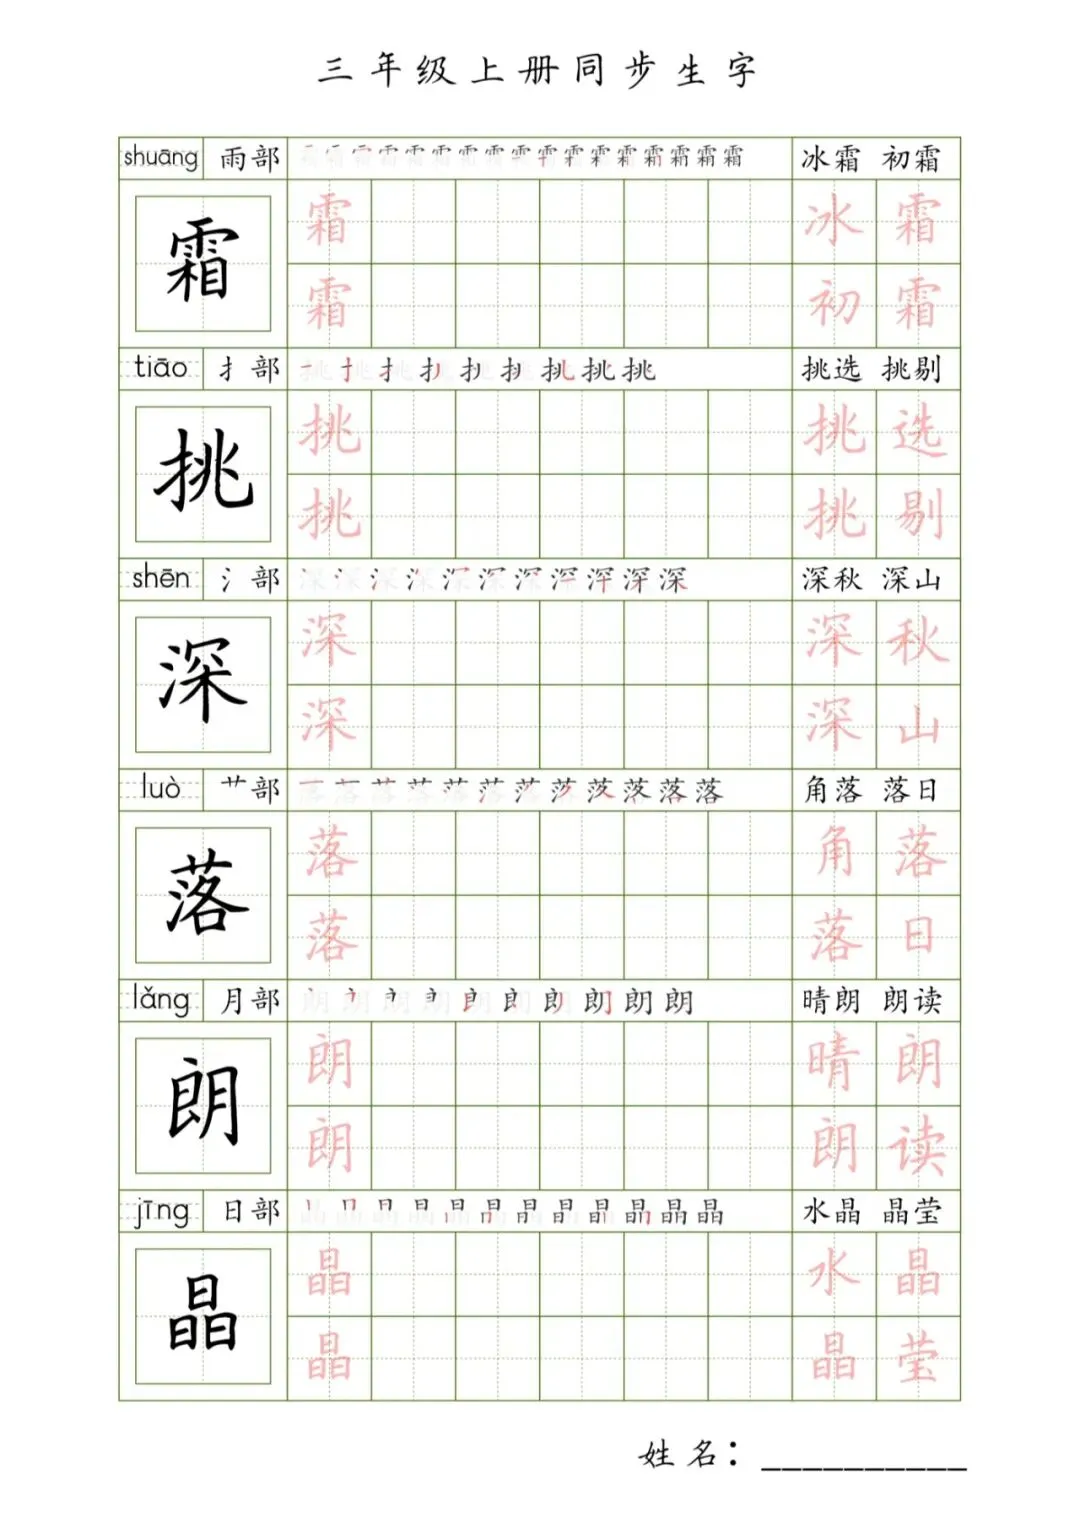 三年级上册同步生字
shuāng 雨部 冰霜 初霜
霜 霜 冰 霜
霜 初 霜
tiāo 扌部 挑选 挑剔
挑 挑 挑 选
挑 挑 剔
shēn 氵部 深秋 深山
深 深 深 秋
深 深 山
luò 艹部 角落 落日
落 落 角 落
落 落 日
lǎng 月部 晴朗 朗读
朗 朗 晴 朗
朗 朗 读
jīng 日部 水晶 晶莹
晶 晶 水 晶
晶 晶 莹
姓名：__________